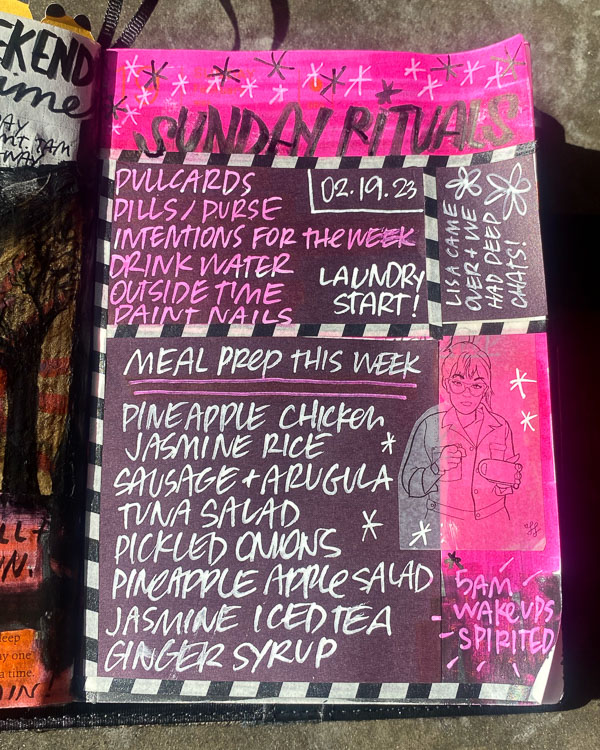 EKEND
ime
SUNDAY RITUALS
PULLCARDS
PILLS / PURSE
INTENTIONS FOR the WEEK
DRINK WATER
OUTSIDE TIME
PAINT NAILS
02.19.23
LAUNDRY
START!
LISA CAME
OVER + WE
HAD DEEP
CHATS!
MEAL PREP THIS WEEK
PINEAPPLE CHICKEN
JASMINE RICE
SAUSAGE + ARUGULA
TUNA SALAD
PICKLED ONIONS
PINEAPPLE APPLE SALAD
JASMINE ICED TEA
GINGER SYRUP
5AM
WAKEUPS
SPIRITED
eep
y one
a time.